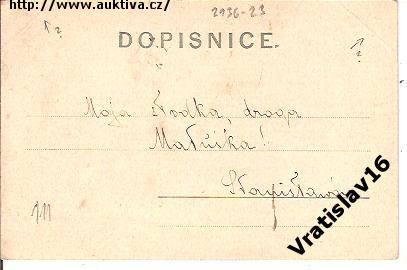 http://www.auktiva.cz/
2936-23
?
?
DOPISNICE.
Moja słodka, droga
Matuśka!
Stanisława
Vratislav16